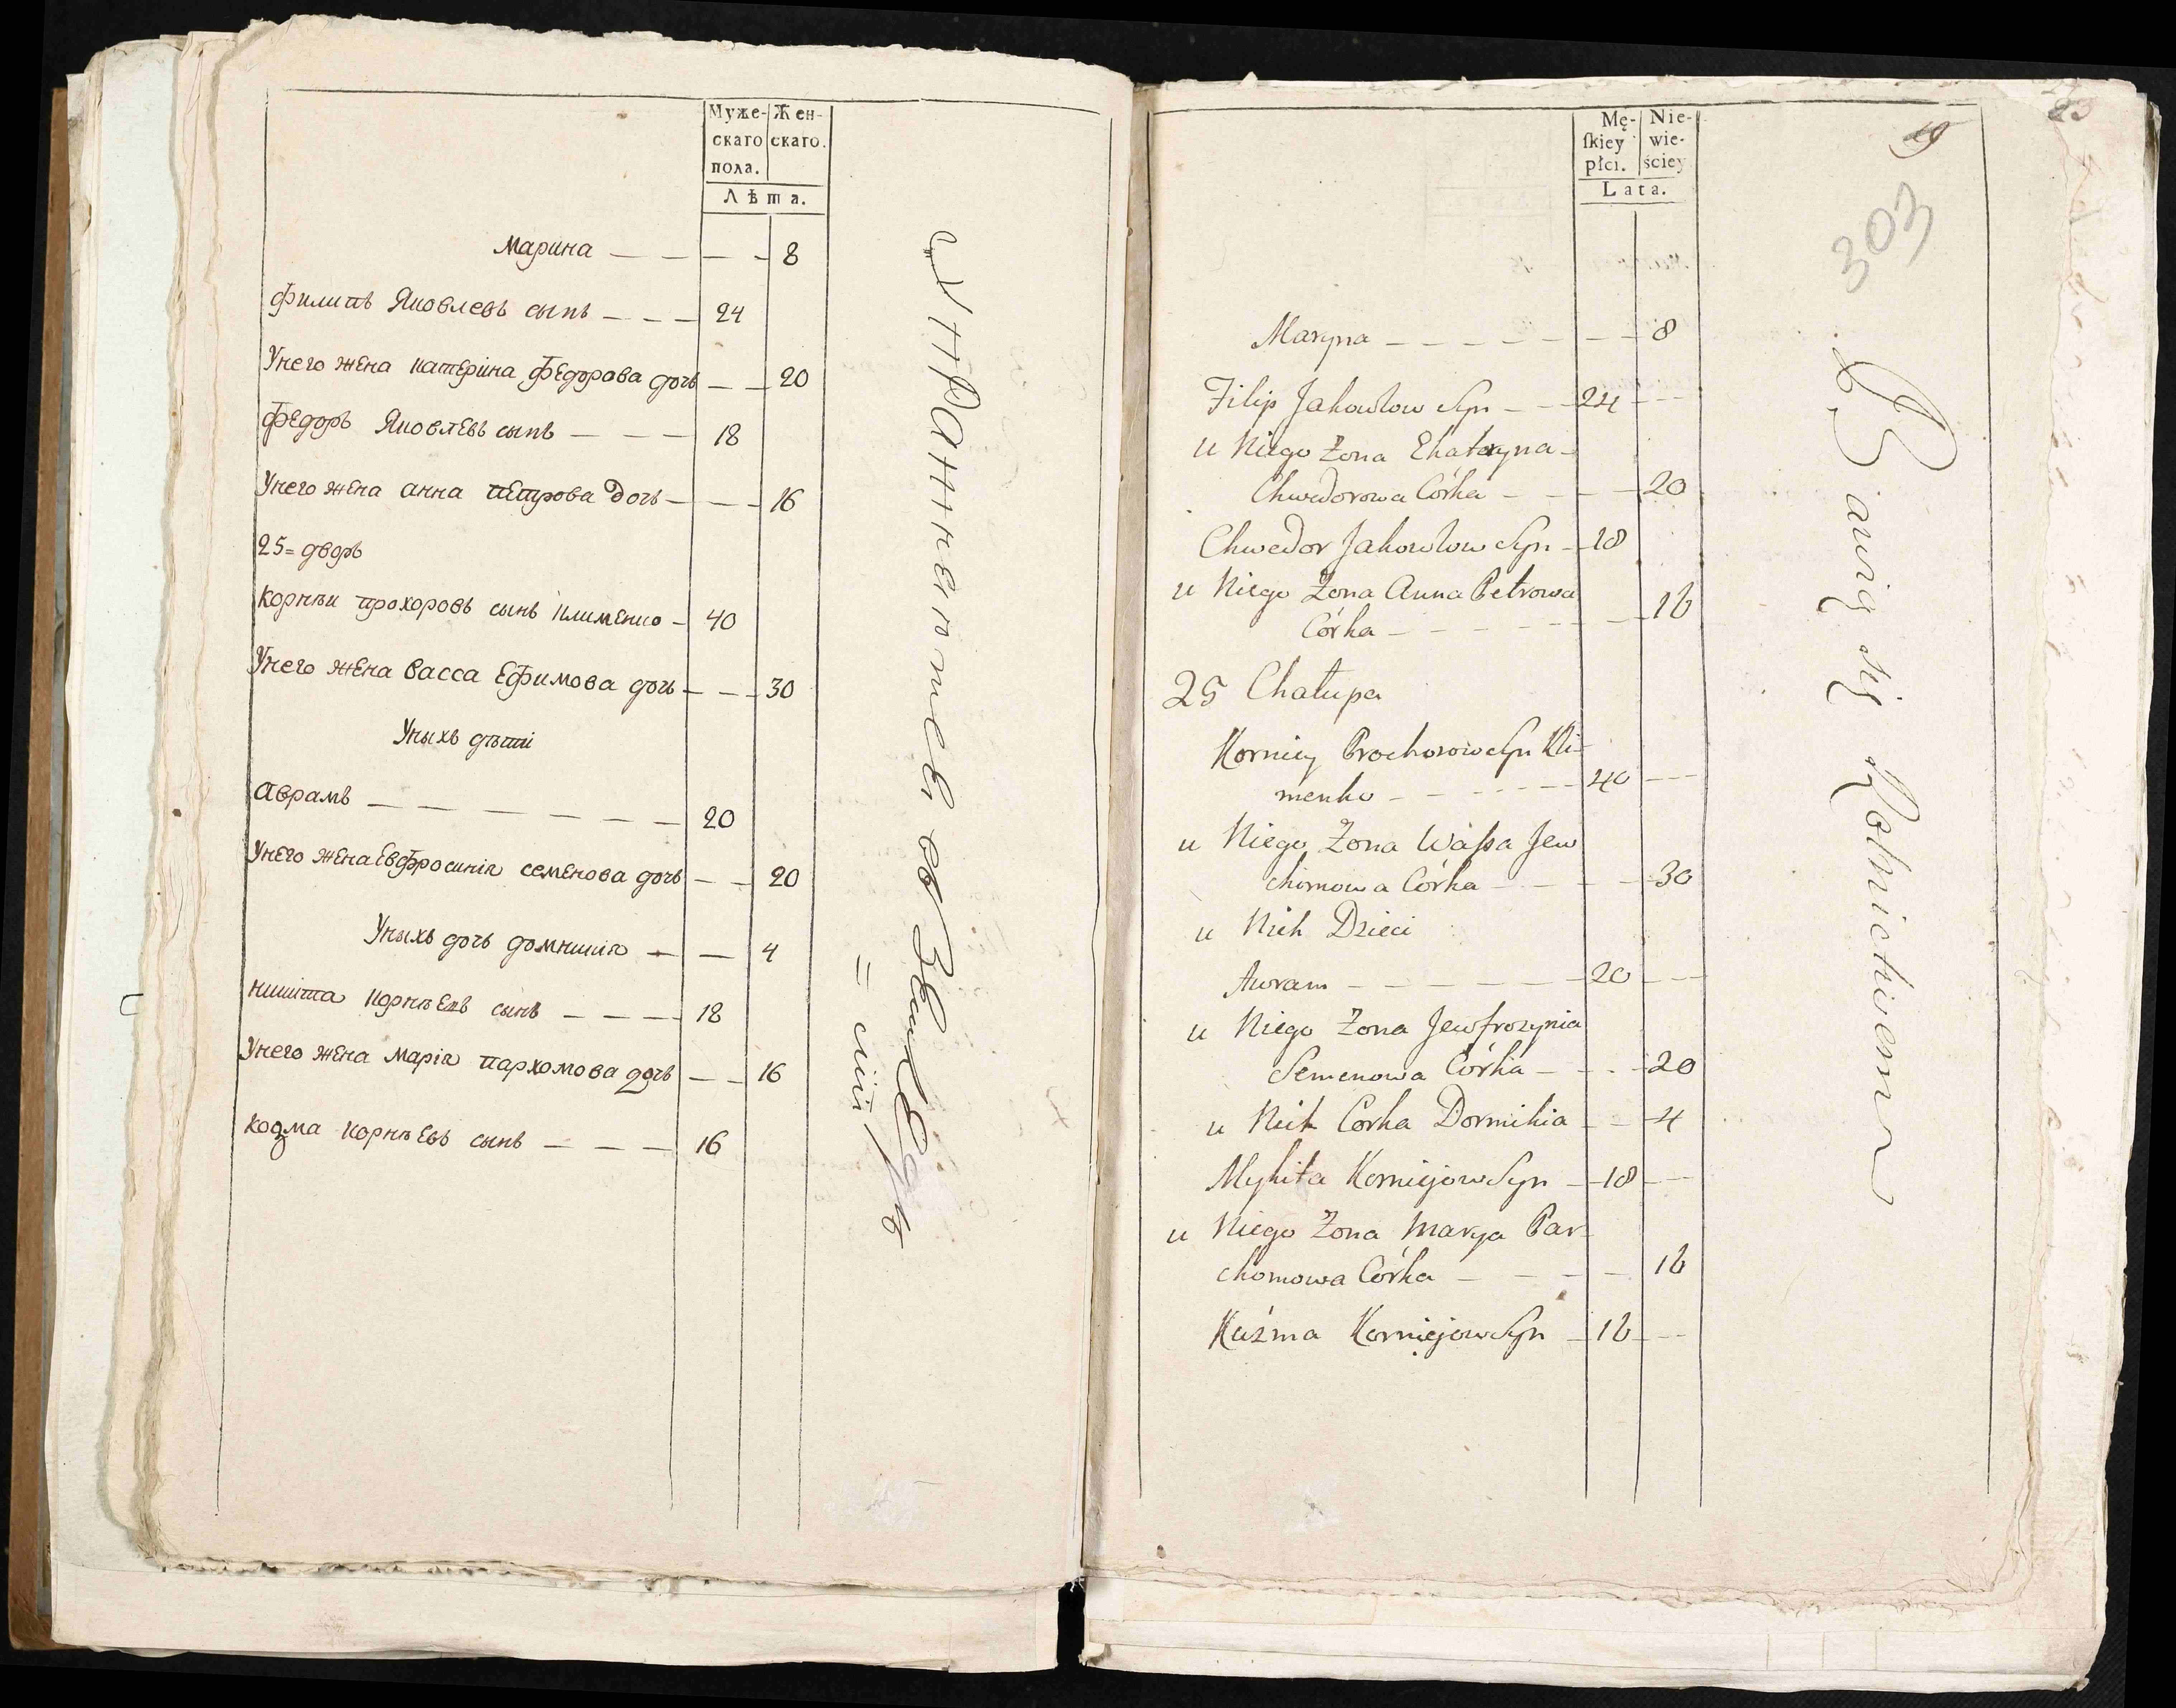 Муже-
скаго
пола.
Жен-
скаго.
Лѣта.
Марина — — — — 8
Филипъ Яковлевъ сынъ — — — 24
Унего жена катерина Федорова дочь — — 20
Федоръ Яковлевъ сынъ — — — 18
Унего жена анна петрова дочь — — — 16
25= дворъ
Корнѣи прохоровъ сынъ клименко — 40
Унего жена васса Ефимова дочь — — — 30
Уныхъ дѣти
Аврамъ — — — — — — 20
Унего жена Евфросинія семенова дочь — — 20
Уныхъ дочь домникія — — 4
никита корнѣевъ сынъ — — — — 18
Унего жена марія пархомова дочь — — 16
козма корнѣевъ сынъ — — — 16
въ
Mę-
ſkiey
płci.
Nie-
wie-
ściey
Lata.
19
303
Maryna — — — — — — — 8
Filip Jakowlow Syn — — 24 — —
u Niego Żona Ekateryna —
Chwedorowa Córka — — — 20
Chwedor Jakowlow Syn — 18
u Niego Żona Anna Petrowa
Córka — — — — — — — 16
25 Chałupa
Korniey Prochorow Syn Kli-
menko — — — — — — 40 — —
u Niego Żona Waſsa Jew
chimowa Córka — — — — 30
u Nich Dzieci
Awram — — — — — — 20 — —
u Niego Żona Jewfrozynia
Semenowa Córka — — — 20
u Nich Corka Dormikia — — 4
Mykita Korniejow Syn — 18 — —
u Niego Żona Marya Par-
chomowa Córka — — — — 16
Kuźma Korniejow Syn — 16 — —
Bawią się Rolnictwem